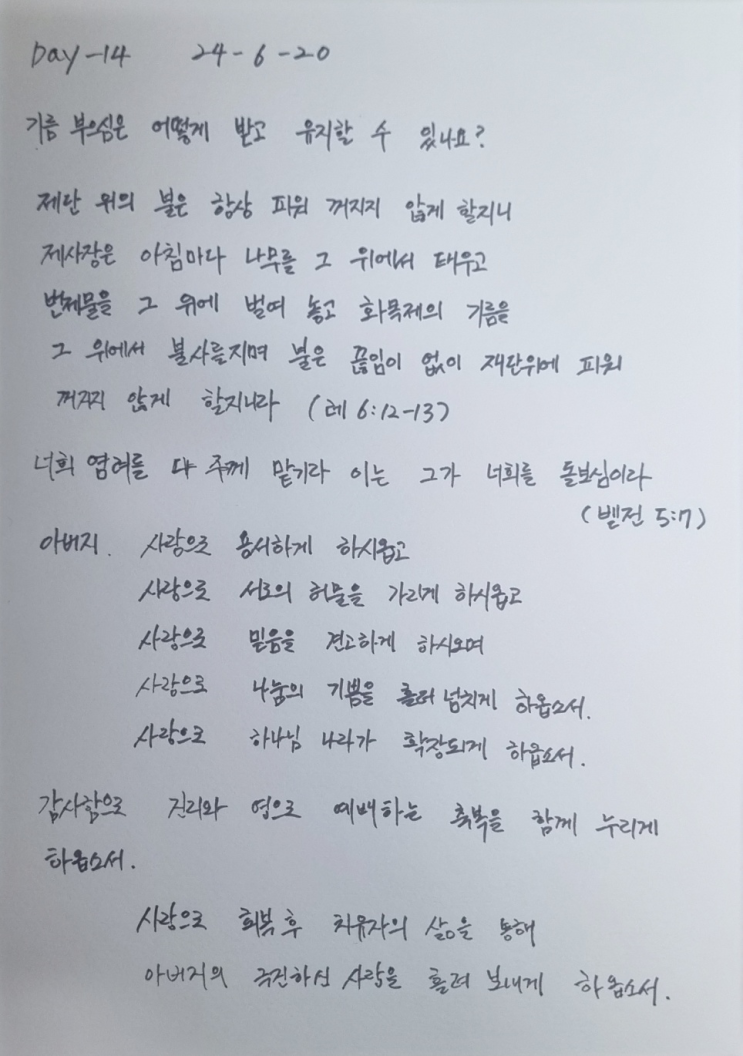 Day-14 24-6-20
기름 부으심은 어떻게 받고 유지할 수 있나요?
제단 위의 불은 항상 피워 꺼지지 않게 할지니
제사장은 아침마다 나무를 그 위에서 태우고
번제물을 그 위에 벌여 놓고 화목제의 기름을
그 위에서 불사를지며 불은 끊임이 없이 재단위에 피워
꺼지지 않게 할지니라 (레 6:12-13)
너희 염려를 다 주께 맡기라 이는 그가 너희를 돌보심이라
(벧전 5:7)
아버지. 사랑으로 용서하게 하시옵고
사랑으로 서로의 허물을 가리게 하시옵고
사랑으로 믿음을 견고하게 하시오며
사랑으로 나눔의 기쁨을 흘러 넘치게 하옵소서.
사랑으로 하나님 나라가 확장되게 하옵소서.
감사함으로 진리와 영으로 예배하는 축복을 함께 누리게
하옵소서.
사랑으로 회복 후 치유자의 삶을 통해
아버지의 극진하신 사랑을 흘려 보내게 하옵소서.